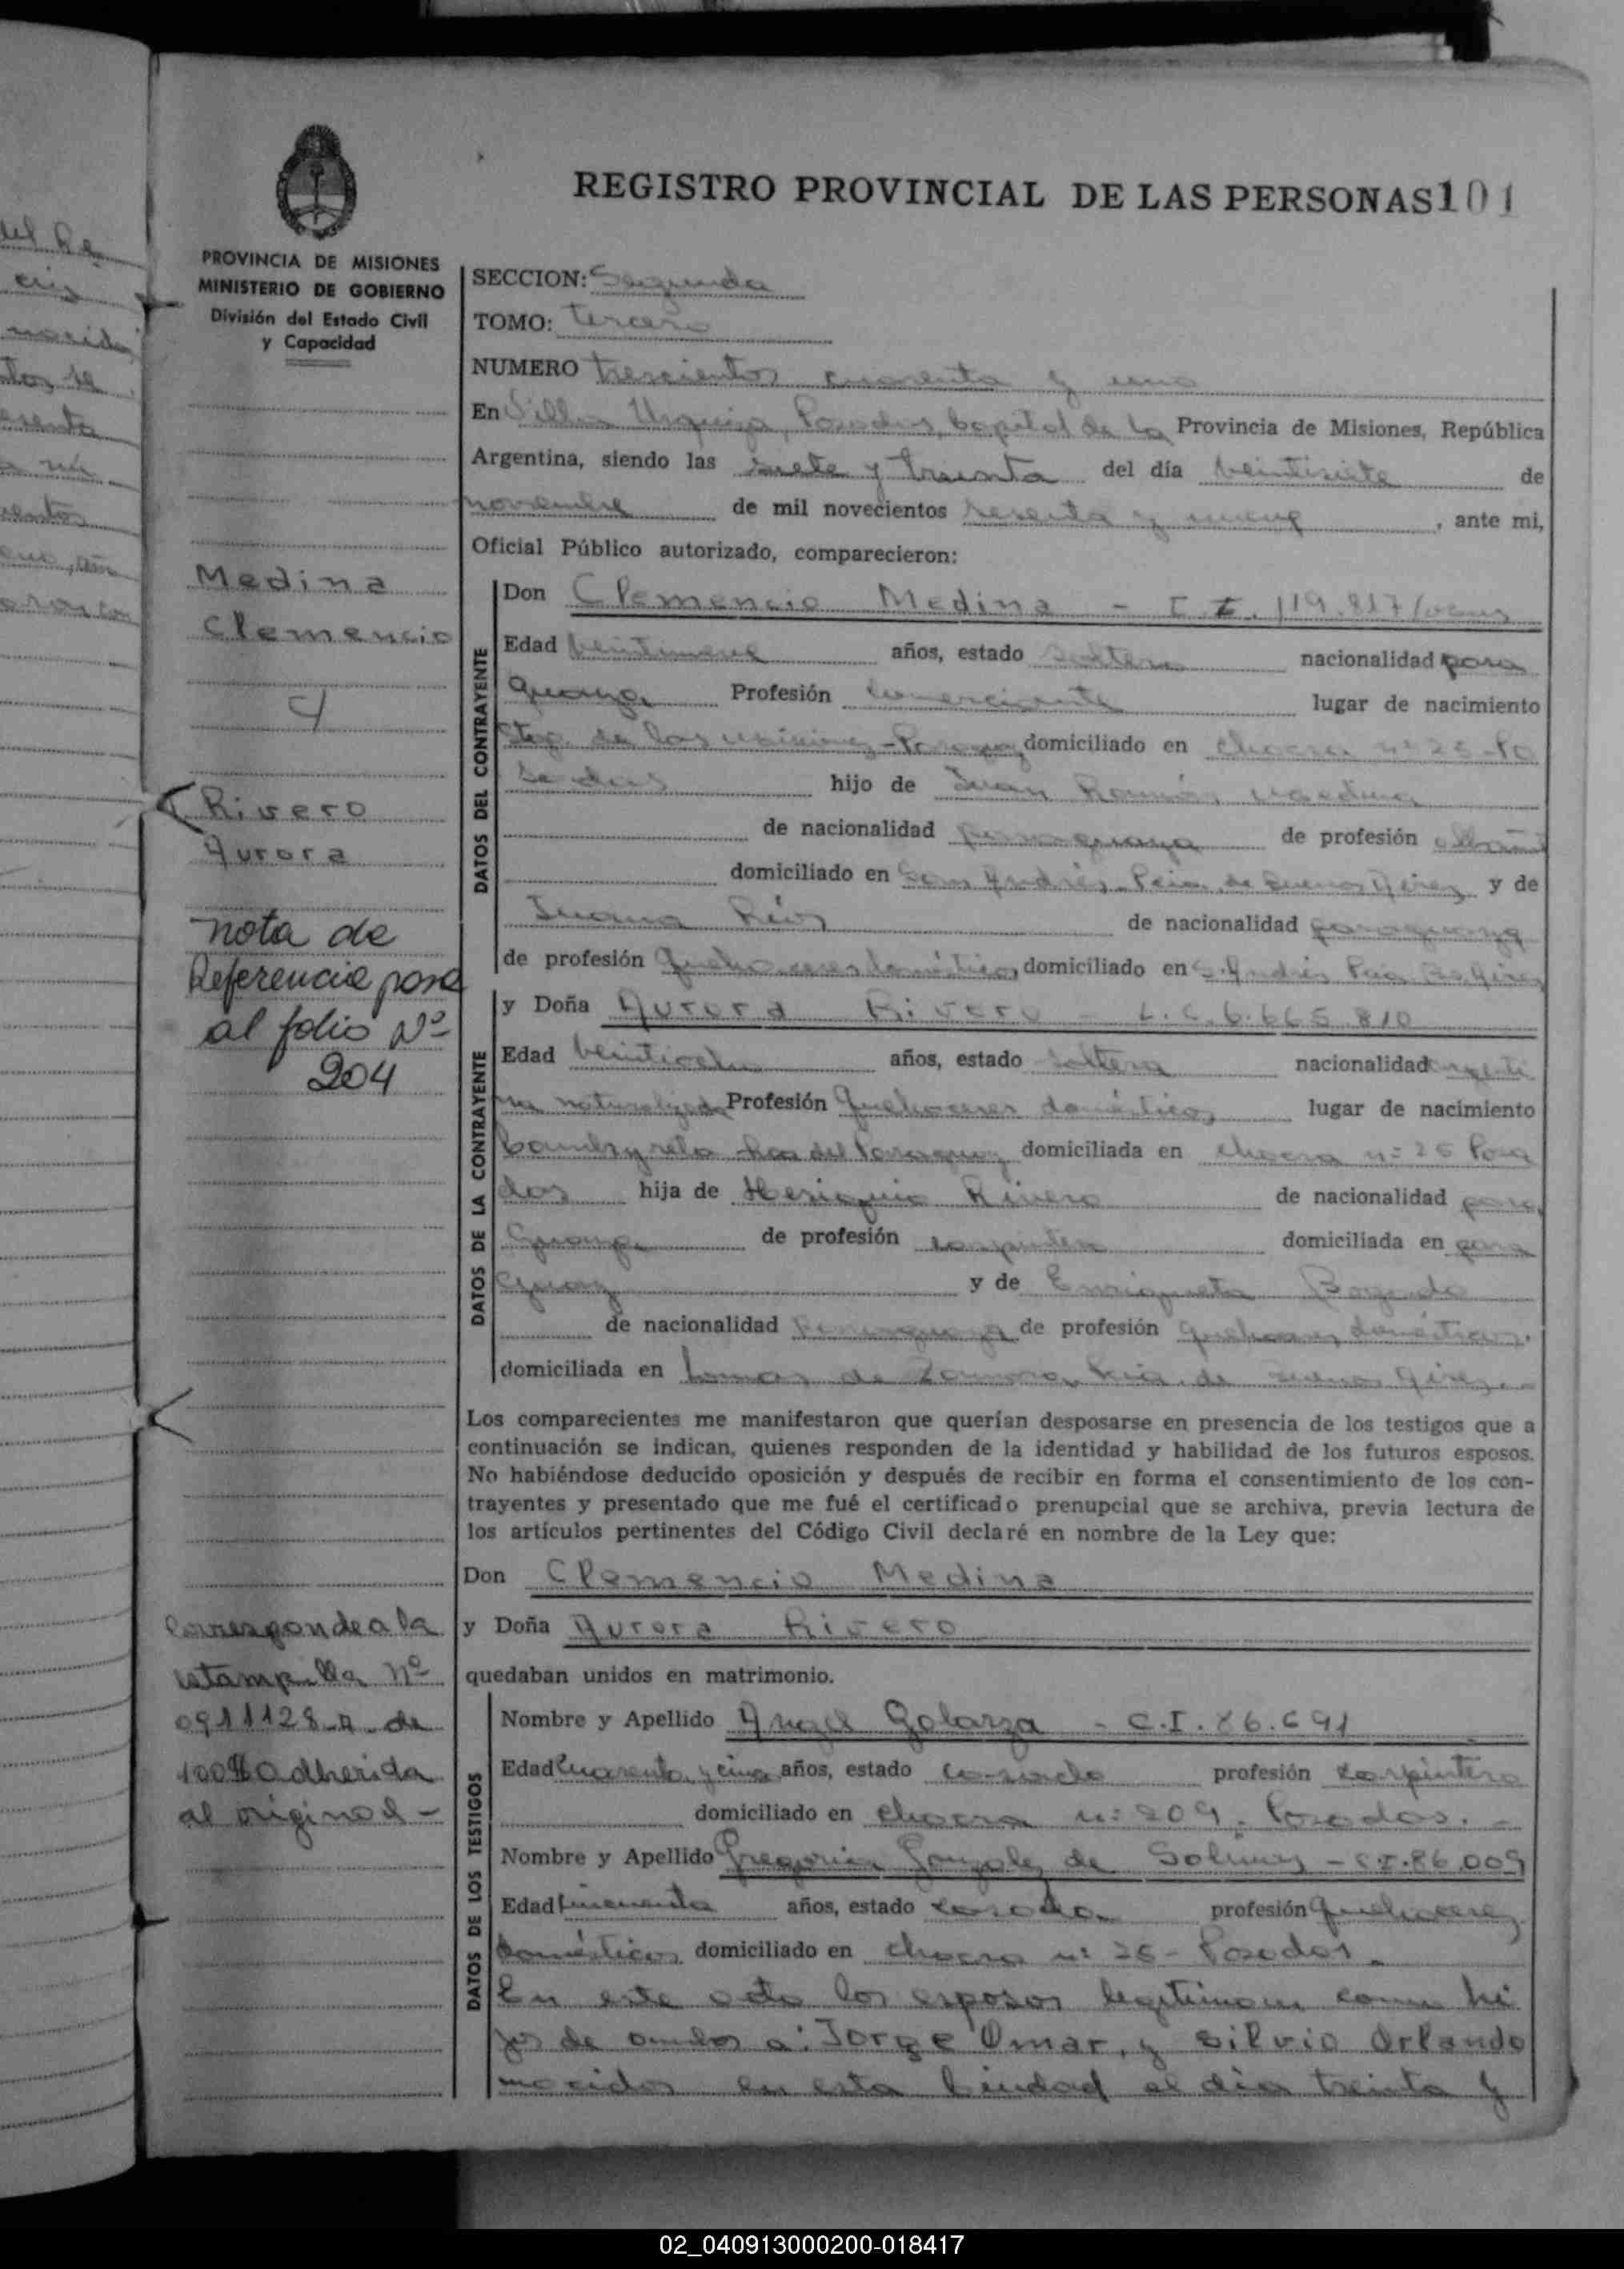 REGISTRO PROVINCIAL DE LAS PERSONAS 101
PROVINCIA DE MISIONES
MINISTERIO DE GOBIERNO
División del Estado Civil
y Capacidad
Medina
Clemencio
y
Rivero
Aurora
nota de
Referencia pasa
al folio Nº
204
Corresponde a la
estampilla nº
0911128-A de
100$ adherida
al original -
SECCION: Segunda
TOMO: tercero
NUMERO trescientos cuarenta y uno
En Villa Urquiza, Posadas, Capital de la Provincia de Misiones, República
Argentina, siendo las siete y treinta del día veintisiete de
noviembre de mil novecientos sesenta y nueve, ante mi,
Oficial Público autorizado, comparecieron:
DATOS DEL CONTRAYENTE
Don Clemencio Medina - C.I. 119.817
Edad veintinueve años, estado soltero nacionalidad para
guaya Profesión comerciante lugar de nacimiento
Stgo. de las Misiones - Paraguay domiciliado en chacra nº 25 - Po
sadas hijo de Juan Ramón Medina
de nacionalidad paraguaya de profesión albañil
domiciliado en San Andrés - Pcia. de Buenos Aires y de
Juana Ríos de nacionalidad paraguaya
de profesión Quehaceres domésticos, domiciliado en S. Andrés Pcia Bs. Aires
DATOS DE LA CONTRAYENTE
y Doña Aurora Rivero L.C. 6.665.810
Edad veintiocho años, estado soltera nacionalidad argenti
na naturalizada Profesión Quehaceres domésticos lugar de nacimiento
Cambyreta Rca del Paraguay domiciliada en chacra nº 25 Posa
das hija de Rivero de nacionalidad para
guaya de profesión carpintero domiciliada en para
guay y de Enriqueta Bogado
de nacionalidad Paraguaya de profesión quehaceres domésticos.
domiciliada en Lomas de Zamora, Pcia. de Buenos Aires.-
Los comparecientes me manifestaron que querían desposarse en presencia de los testigos que a
continuación se indican, quienes responden de la identidad y habilidad de los futuros esposos.
No habiéndose deducido oposición y después de recibir en forma el consentimiento de los con-
trayentes y presentado que me fué el certificado prenupcial que se archiva, previa lectura de
los artículos pertinentes del Código Civil declaré en nombre de la Ley que:
Don Clemencio Medina
y Doña Aurora Rivero
quedaban unidos en matrimonio.
DATOS DE LOS TESTIGOS
Nombre y Apellido Angel Golarza - C.I. 86.691
Edad Cuarenta y cinco años, estado casado profesión carpintero
domiciliado en chacra nº 209. Posadas. -
Nombre y Apellido Gregoria Gonzalez de Solinas - C.I. 86.009
Edad cincuenta años, estado casada profesión Quehaceres
domésticos domiciliado en chacra nº 25 - Posadas.
En este acto los esposos legitiman como hi
jos de ambos a: Jorge Omar, y Silvio Orlando
nacidos en esta Ciudad el día treinta y
02_040913000200-018417